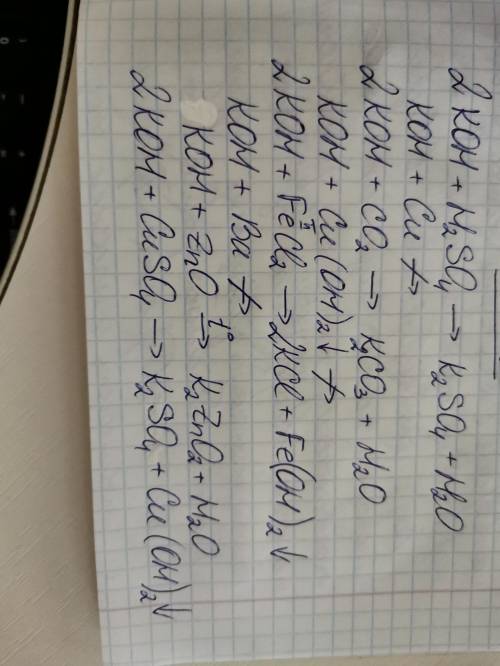 2KOH + H₂SO₄ → K₂SO₄ + H₂O
KOH + Cu ↛
2KOH + CO₂ → K₂CO₃ + H₂O
KOH + Cu(OH)₂↓ ↛
2KOH + FeᴵᴵCl₂ → 2KCl + Fe(OH)₂↓
KOH + Ba ↛
KOH + ZnO t°→ K₂ZnO₂ + H₂O
2KOH + CuSO₄ → K₂SO₄ + Cu(OH)₂↓